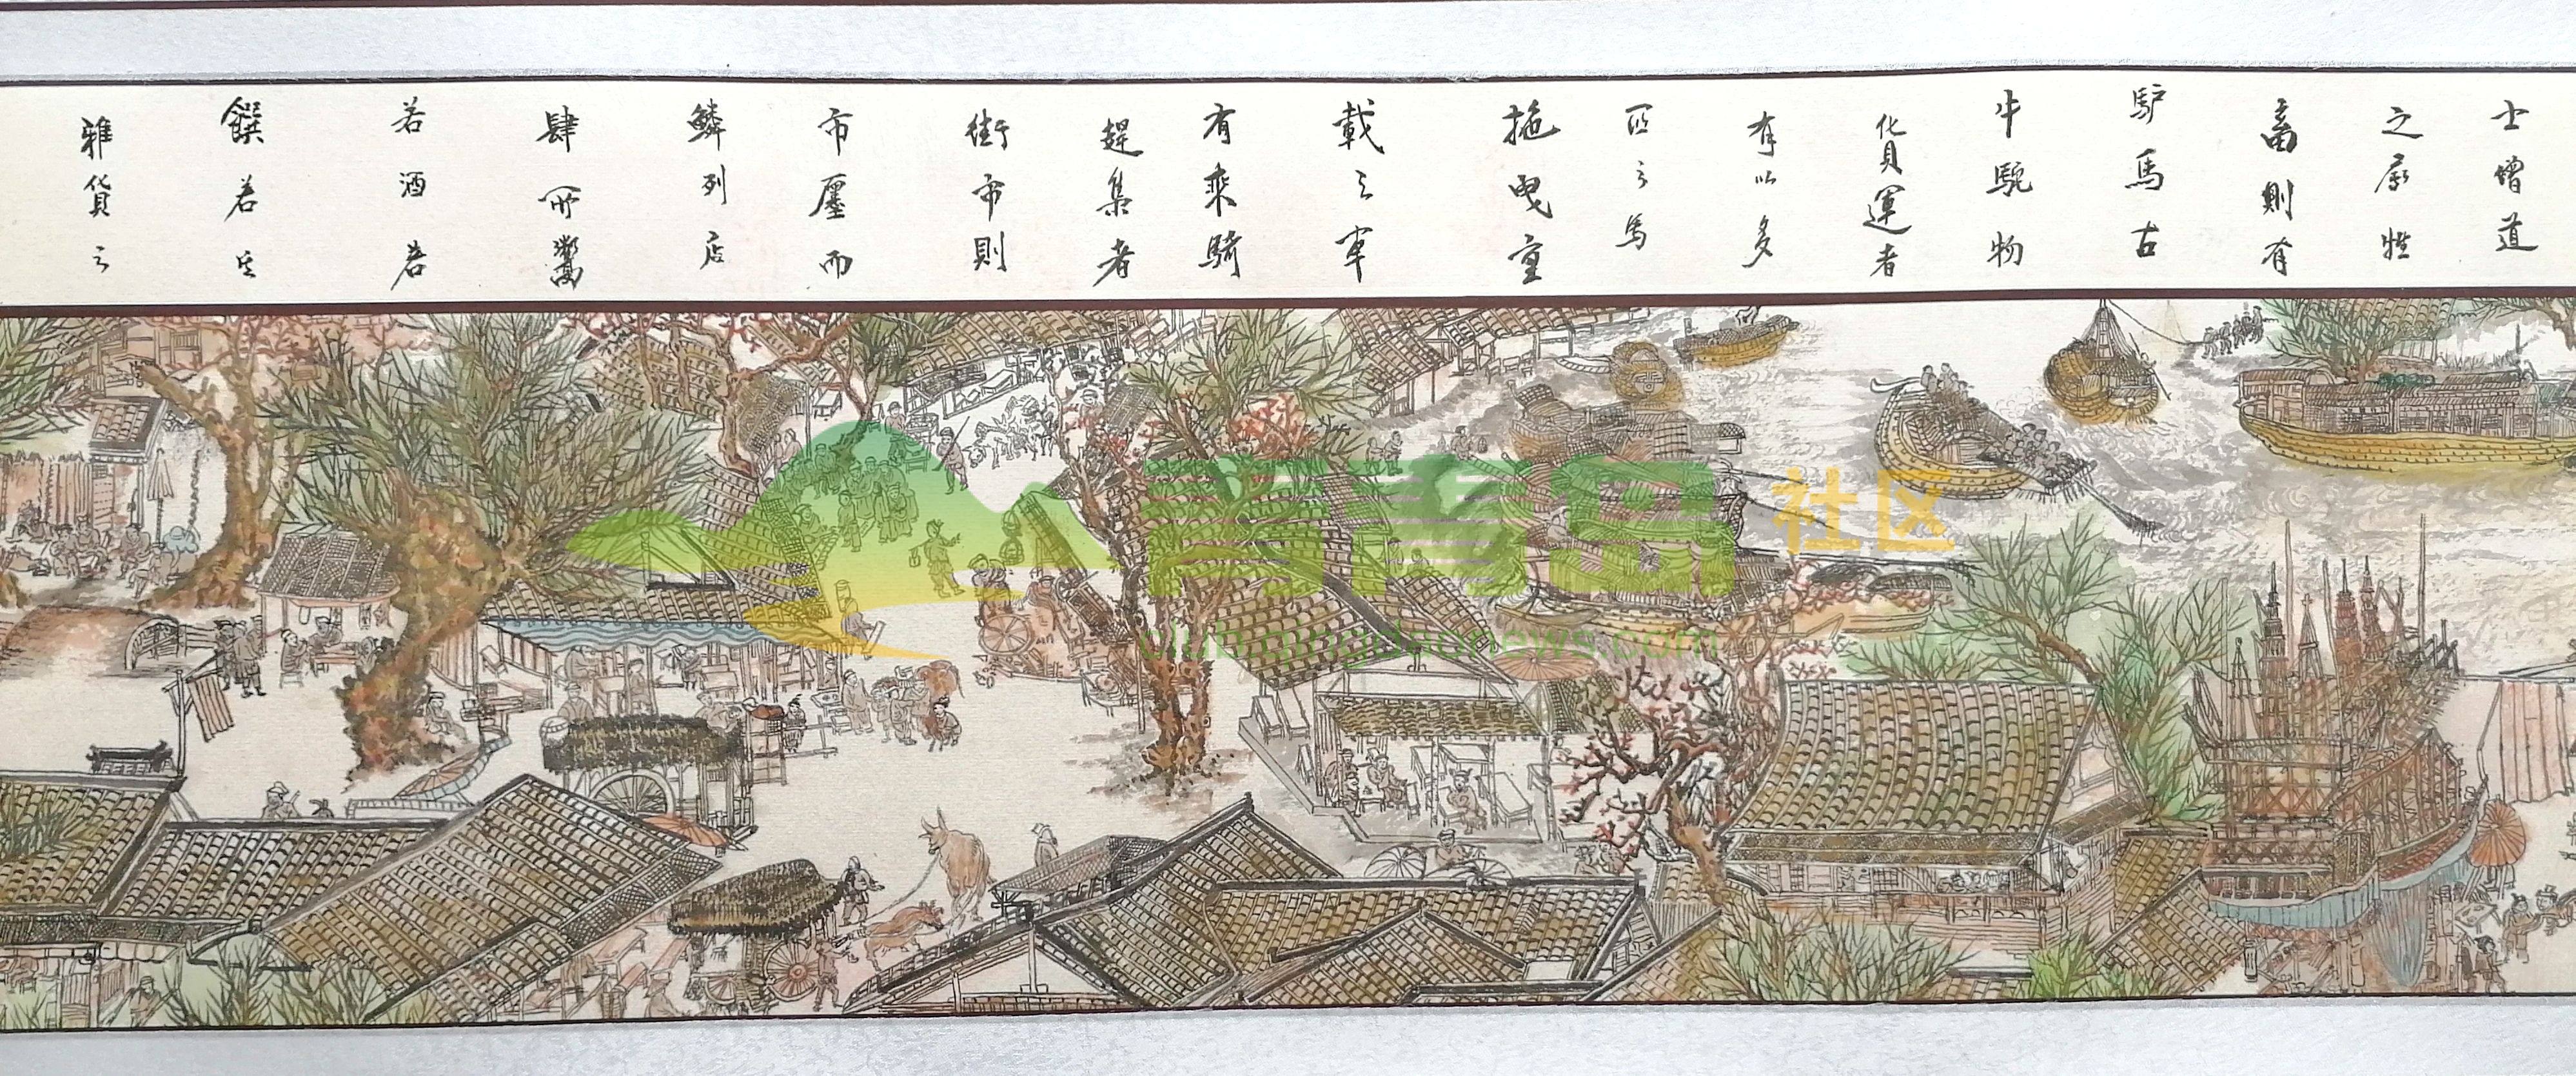 士增道
之属牲
畜則有
驴馬古
牛駝物
貨運者
有以多
匹之馬
拖曳重
載之車
有乘騎
趕集者
街市則
市廛而
鱗列店
肆所鬻
若酒若
饌若
雅貨之
青青岛 社区
club.qingdaonews.com